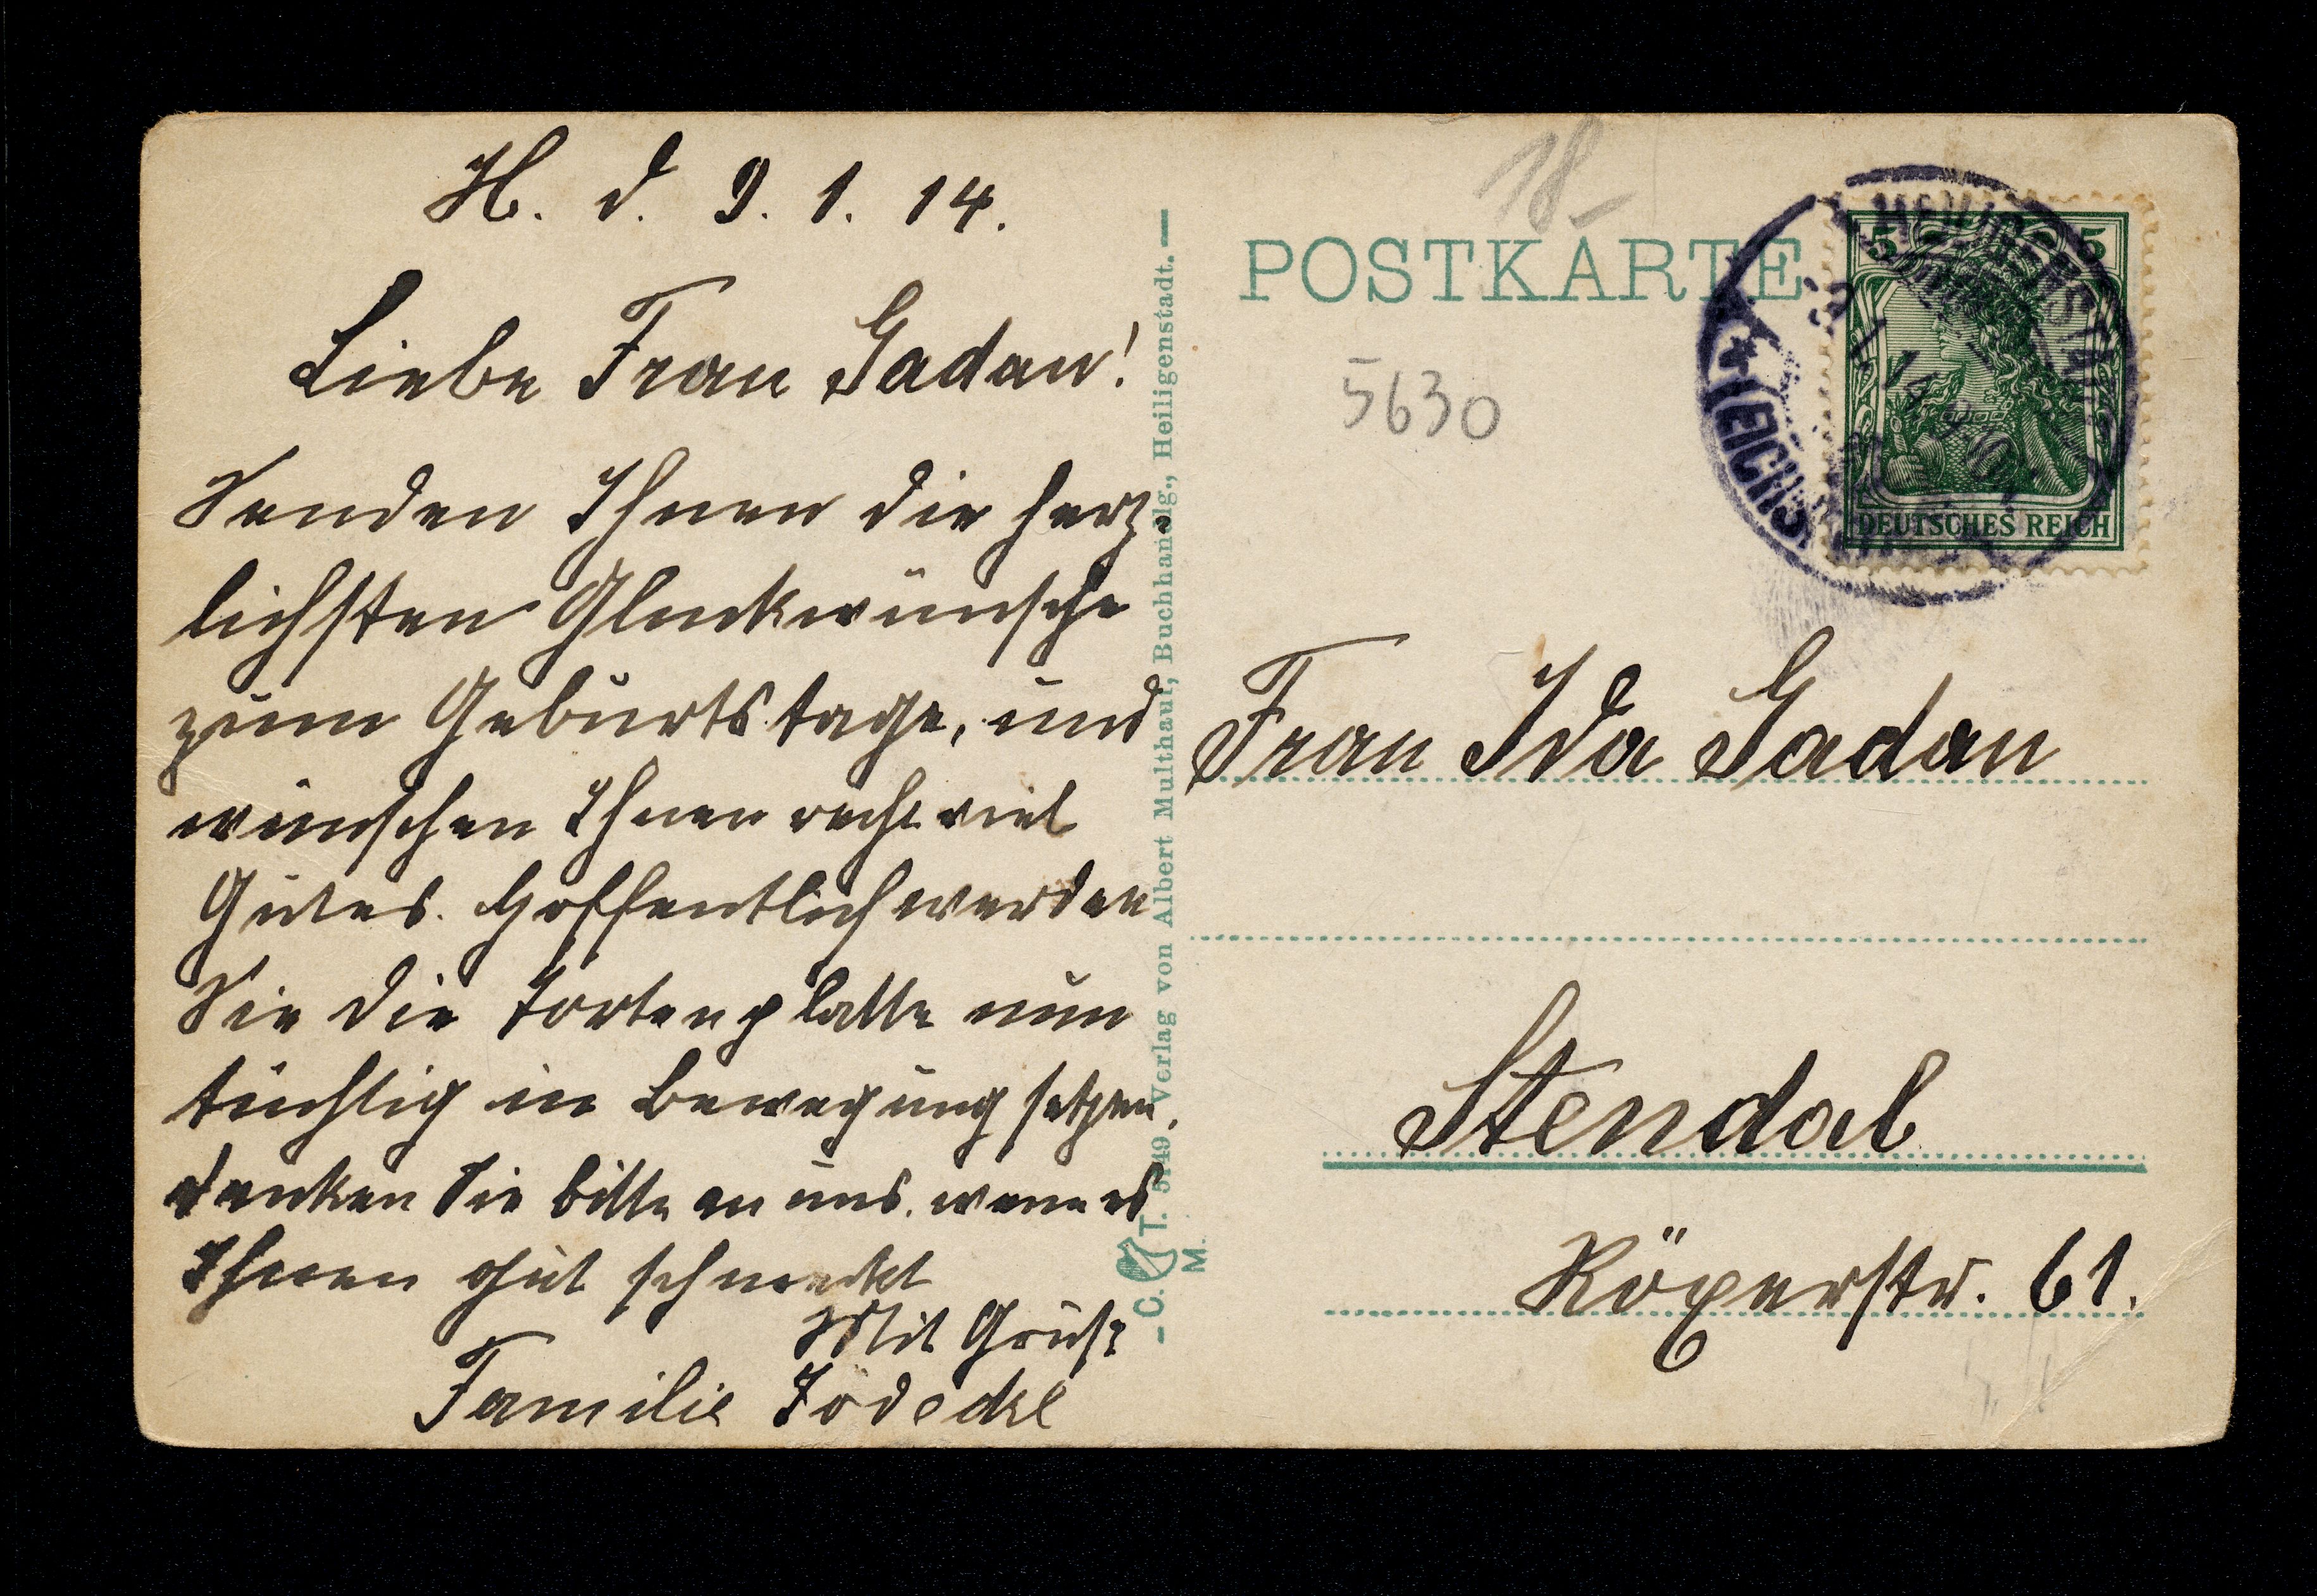 H. d. 9. 1. 14.
Liebe Frau Gadau!
Senden Ihnen die herz-
lichsten Gluckwünsche
zum Geburtstage, und
wünschen Ihnen recht viel
Gutes. Hoffentlich werden
Sie die Tortenplatte nun
tüchtig in Bewegung setzen,
denken Sie bitte an uns. wenn es
Ihnen gut schmeckt
Mit Gruß
Familie
- C. T. M. Verlag von Albert Multhaut, Buchhandlg., Heiligenstadt. —
18-
POSTKARTE
5630
5 5
DEUTSCHES REICH
HEILIGENSTADT
(EICHSFELD)
9 1 14
Frau Ida Gadau
Stendal
Röxerstr. 61.